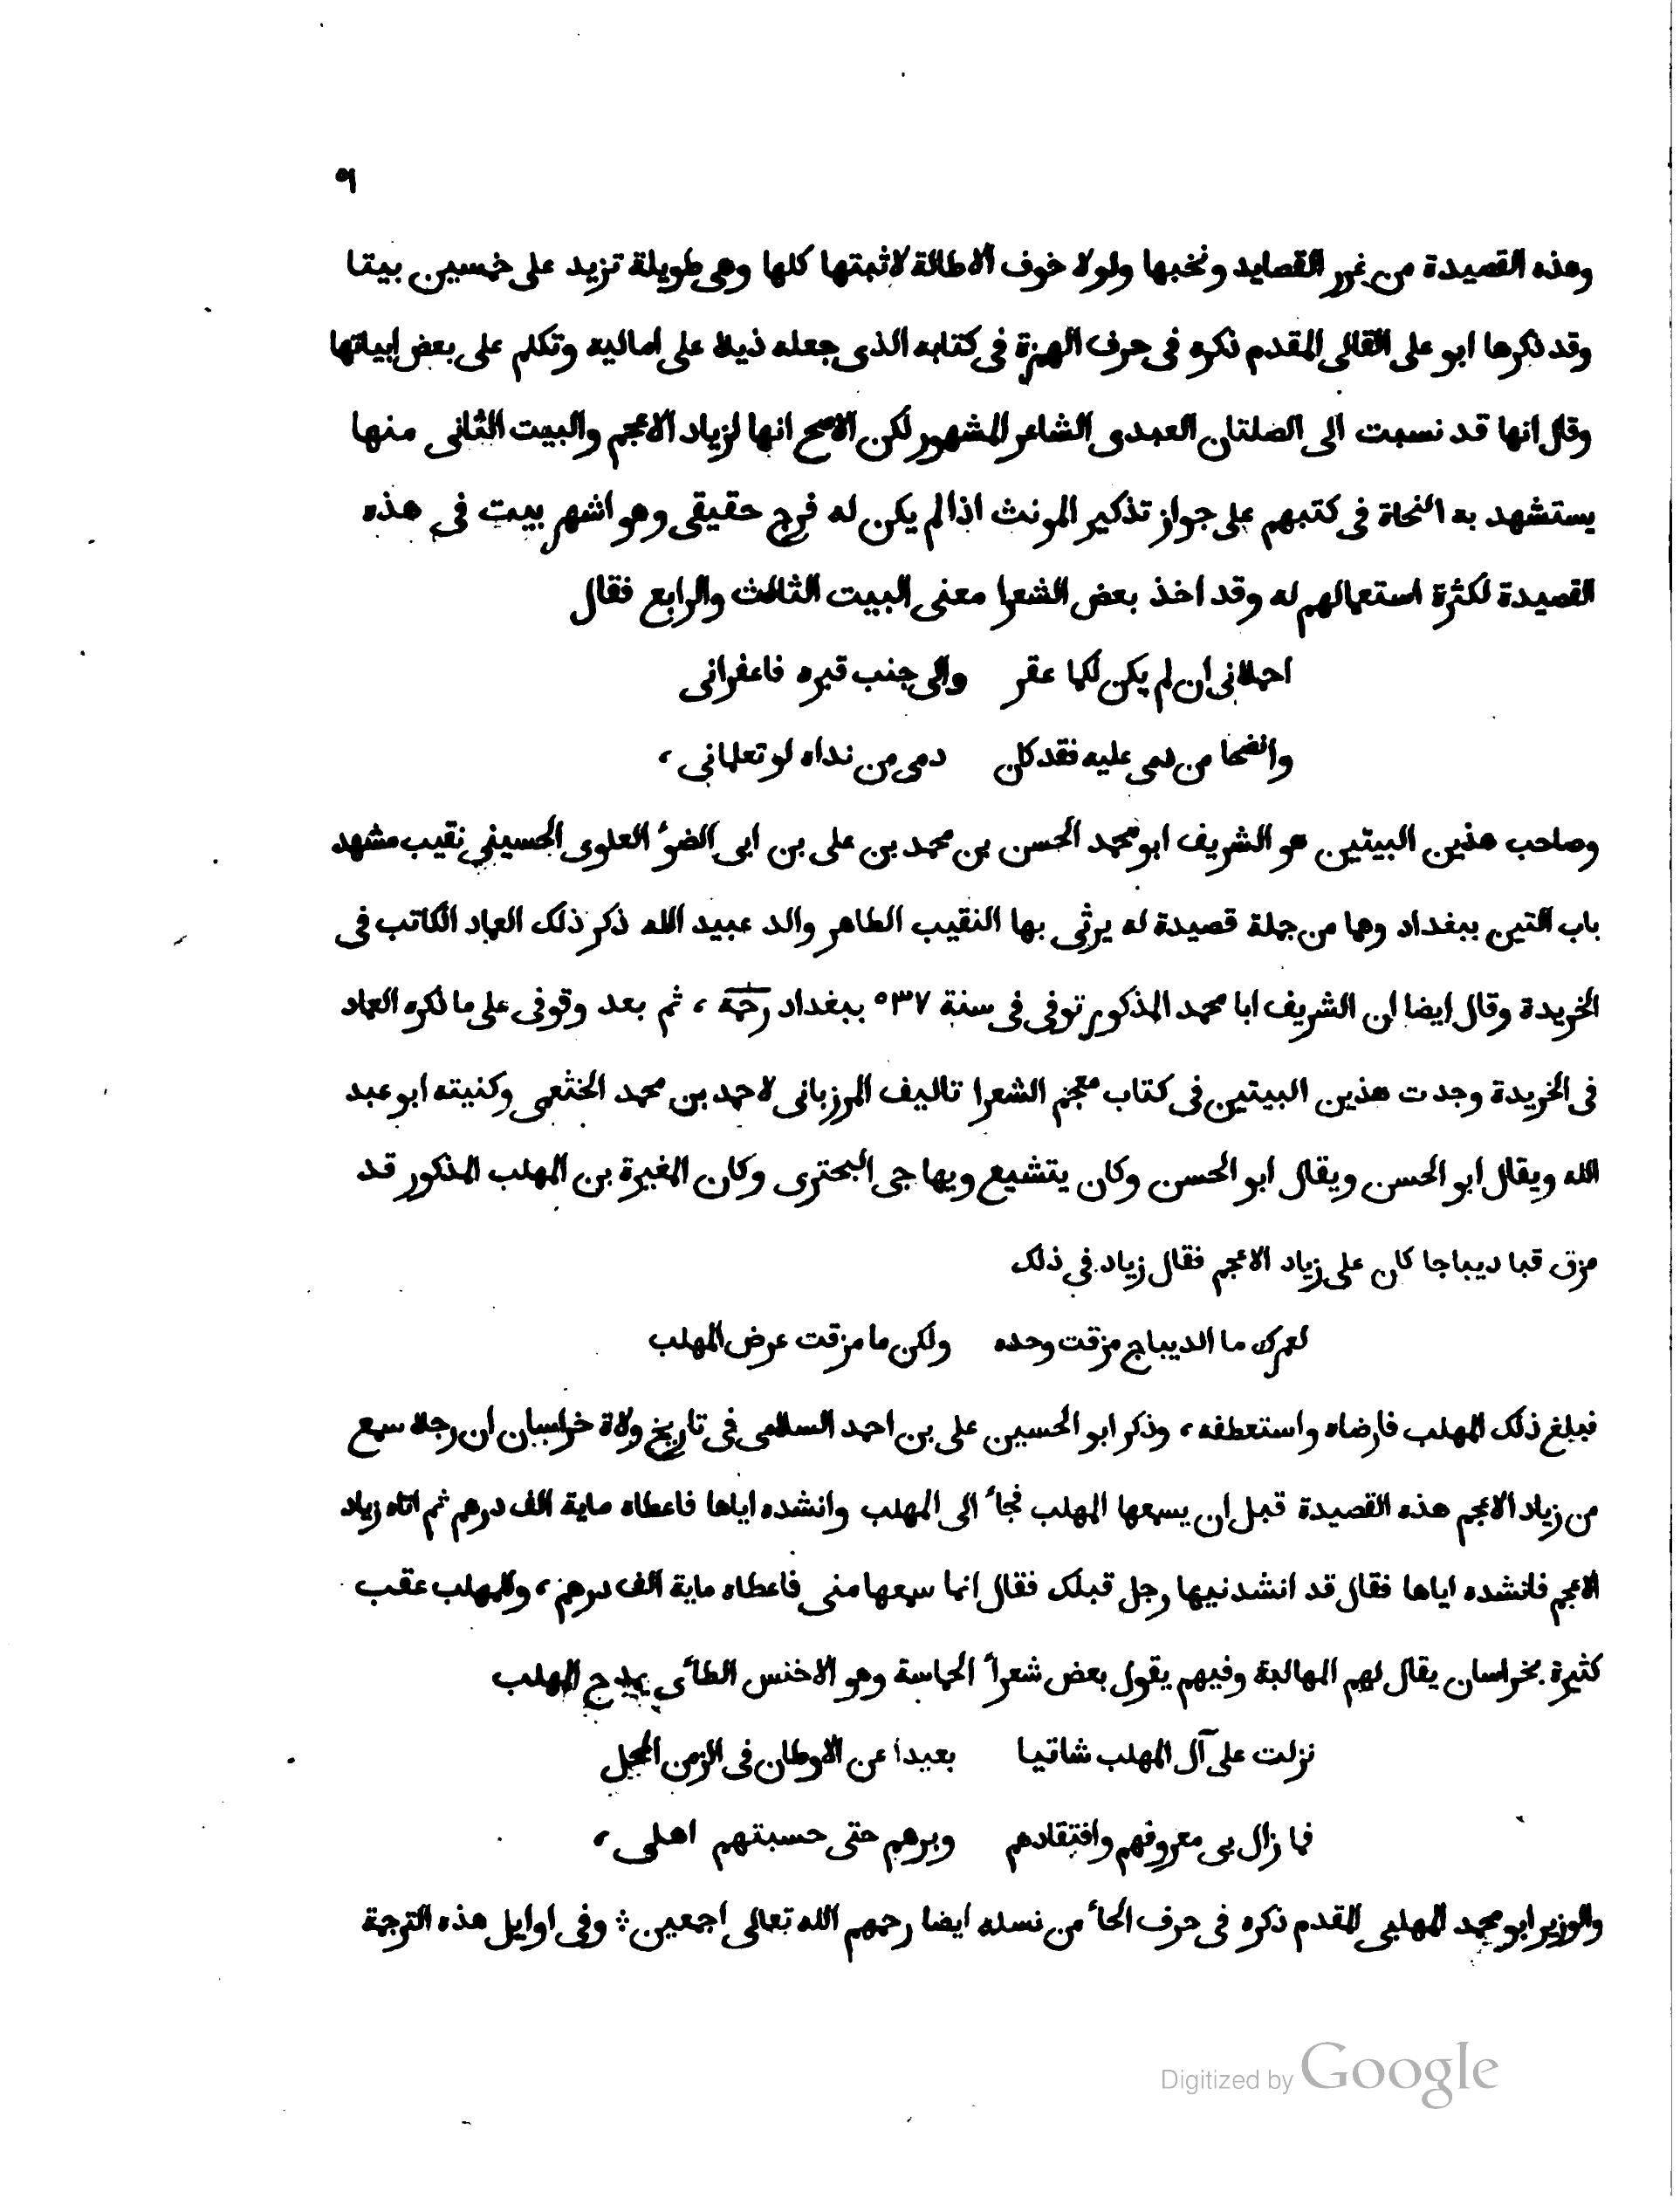 ٥٩
وهذه القصيدة من غرر القصايد ونخبها ولولا خوف الاطالة لاثبتها كلها وهى طويلة تزيد على خمسين بيتا
وقد ذكرها ابو على القالى المقدم ذكره فى حرف الهمزة فى كتابه الذى جعله ذيلا على اماليه وتكلم على بعض ابياتها
وقال انها قد نسبت الى الصلتان العبدى الشاعر المشهور لكن الاصح انها لزياد الاعجم والبيت الثانى منها
يستشهد به النحاة فى كتبهم على جواز تذكير المونث اذا لم يكن له فرج حقيقى وهو اشهر بيت فى هذه
القصيدة لكثرة استعمالهم له وقد اخذ بعض الشعرا معنى البيت الثالث والرابع فقال
احملانى ان لم يكن لكما عقر والى جنب قبره فاعقرانى
وانضحا من دمى عليه فقد كان دمى من نداه لو تعلمانى ،
وصاحب هذين البيتين هو الشريف ابو محمد الحسن بن محمد بن على بن ابى الضوٴ العلوى الحسينى نقيب مشهد
باب التين ببغداد وهما من جملة قصيدة له يرثى بها النقيب الطاهر والد عبيد الله ذكر ذلك العماد الكاتب فى
الخريدة وقال ايضا ان الشريف ابا محمد المذكور توفى فى سنة ٥٣٧ ببغداد رحمة ، ثم بعد وقوفى على ما ذكره العماد
فى الخريدة وجدت هذين البيتين فى كتاب معجم الشعرا تاليف المرزبانى لاحمد بن محمد الخثعمى وكنيته ابو عبد
الله ويقال ابو الحسن ويقال ابو الحسن وكان يتشيع ويهاجى البحترى وكان المغيرة بن المهلب المذكور قد
مزق قبا ديباجا كان على زياد الاعجم فقال زياد فى ذلك
لعمرك ما الديباج مزقت وحده ولكن ما مزقت عرض المهلب
فبلغ ذلك المهلب فارضاه واستعطفه ، وذكر ابو الحسين على بن احمد السلامى فى تاريخ ولاة خراسان ان رجلا سمع
من زياد الاعجم هذه القصيدة قبل ان يسمعها المهلب فجاٴ الى المهلب وانشده اياها فاعطاه ماية الف درهم ثم اتاه زياد
الاعجم فانشده اياها فقال قد انشدنيها رجل قبلك فقال انما سمعها منى فاعطاه ماية الف درهم ، وللمهلب عقب
كثيرة بخراسان يقال لهم المهالبة وفيهم يقول بعض شعراٴ الحماسة وهو الاخنس الطاٴى يمدح المهلب
نزلت على آل المهلب شاتيا بعيدا عن الاوطان فى الزمن المحل
فما زال بى معروفهم وافتقادهم وبرهم حتى حسبتهم اهلى ،
والوزير ابو محمد المهلبى المقدم ذكره فى حرف الحاٴ من نسله ايضا رحمهم الله تعالى اجمعين ⁘ وفى اوايل هذه الترجمة
Digitized by Google